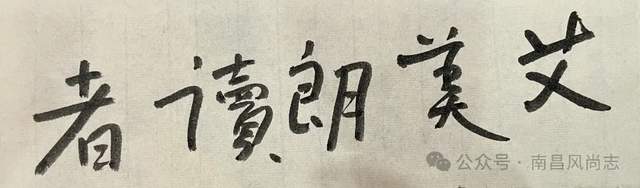 艾美朗讀者
公众号·南昌风尚志